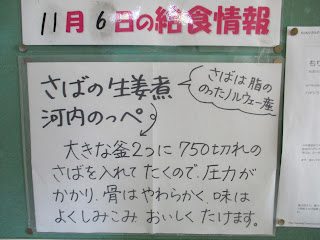 11月6日の給食情報
さばの生姜煮
さばは脂の
のったノルウェー産
河内のっぺ
大きな釜2つに750切れの
さばを入れてたくので、圧力が
かかり、骨はやわらかく、味は
よくしみこみ おいしく たけます。